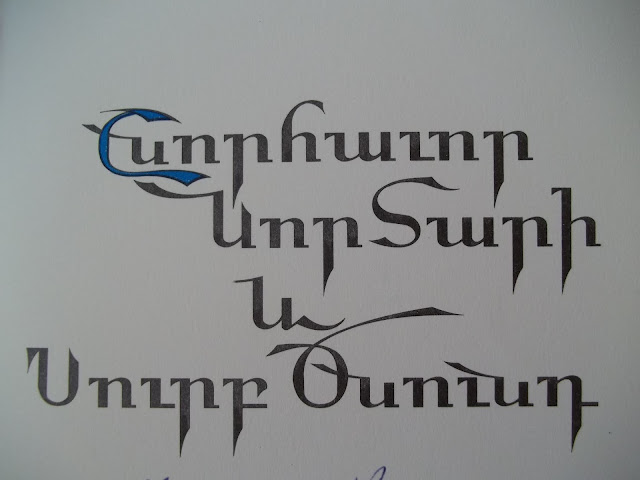 Շնորհաւոր
Նոր Տարի
և
Սուրբ Ծնունդ